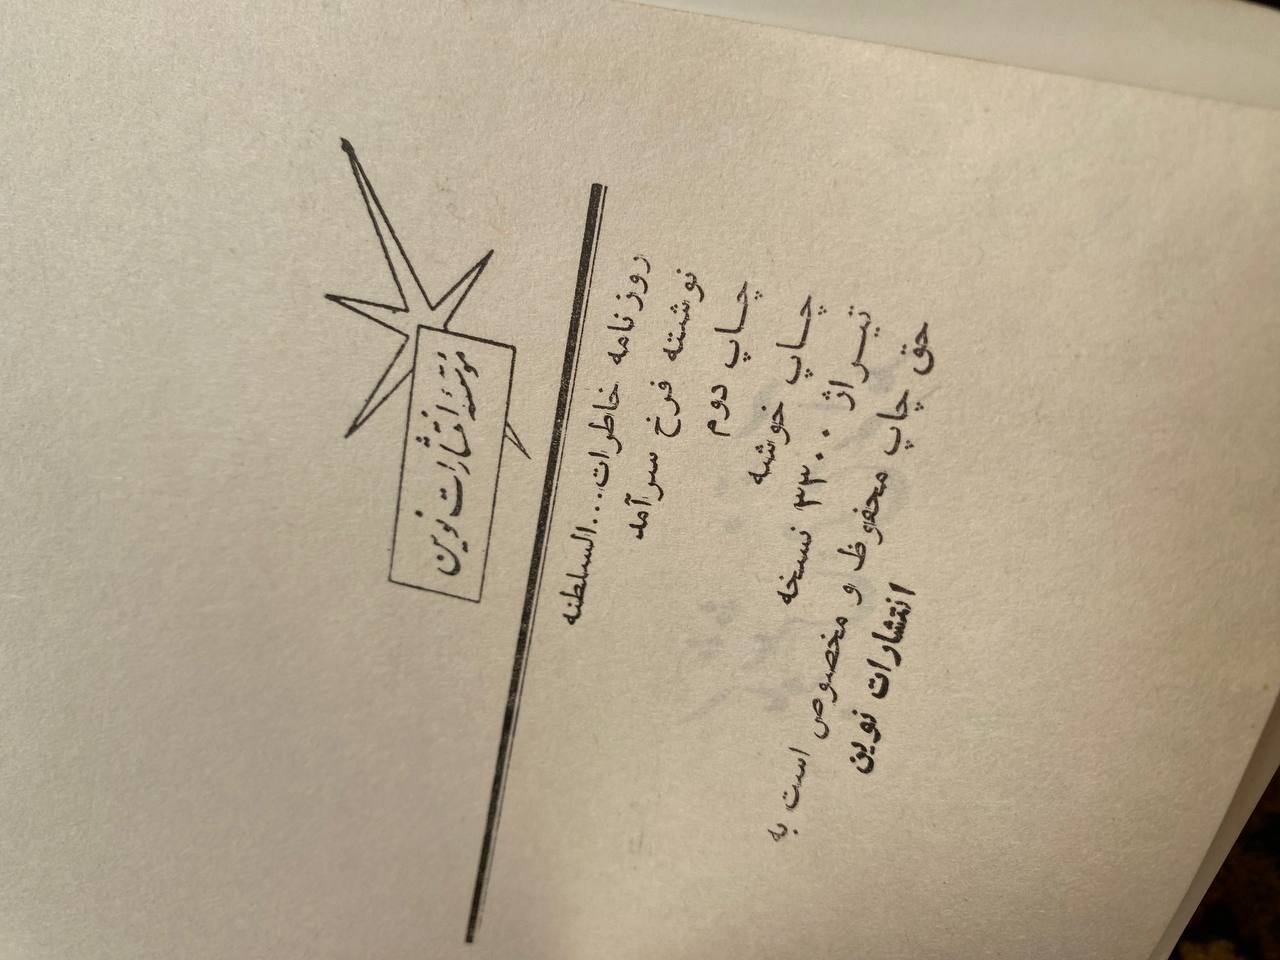 مؤسسه انتشارات نوین
روزنامه خاطرات...السلطنه
نوشته فرخ سرآمد
چاپ دوم
چاپ خوشه
تیراژ ۳۳۰۰ نسخه
حق چاپ محفوظ و مخصوص است به
انتشارات نوین